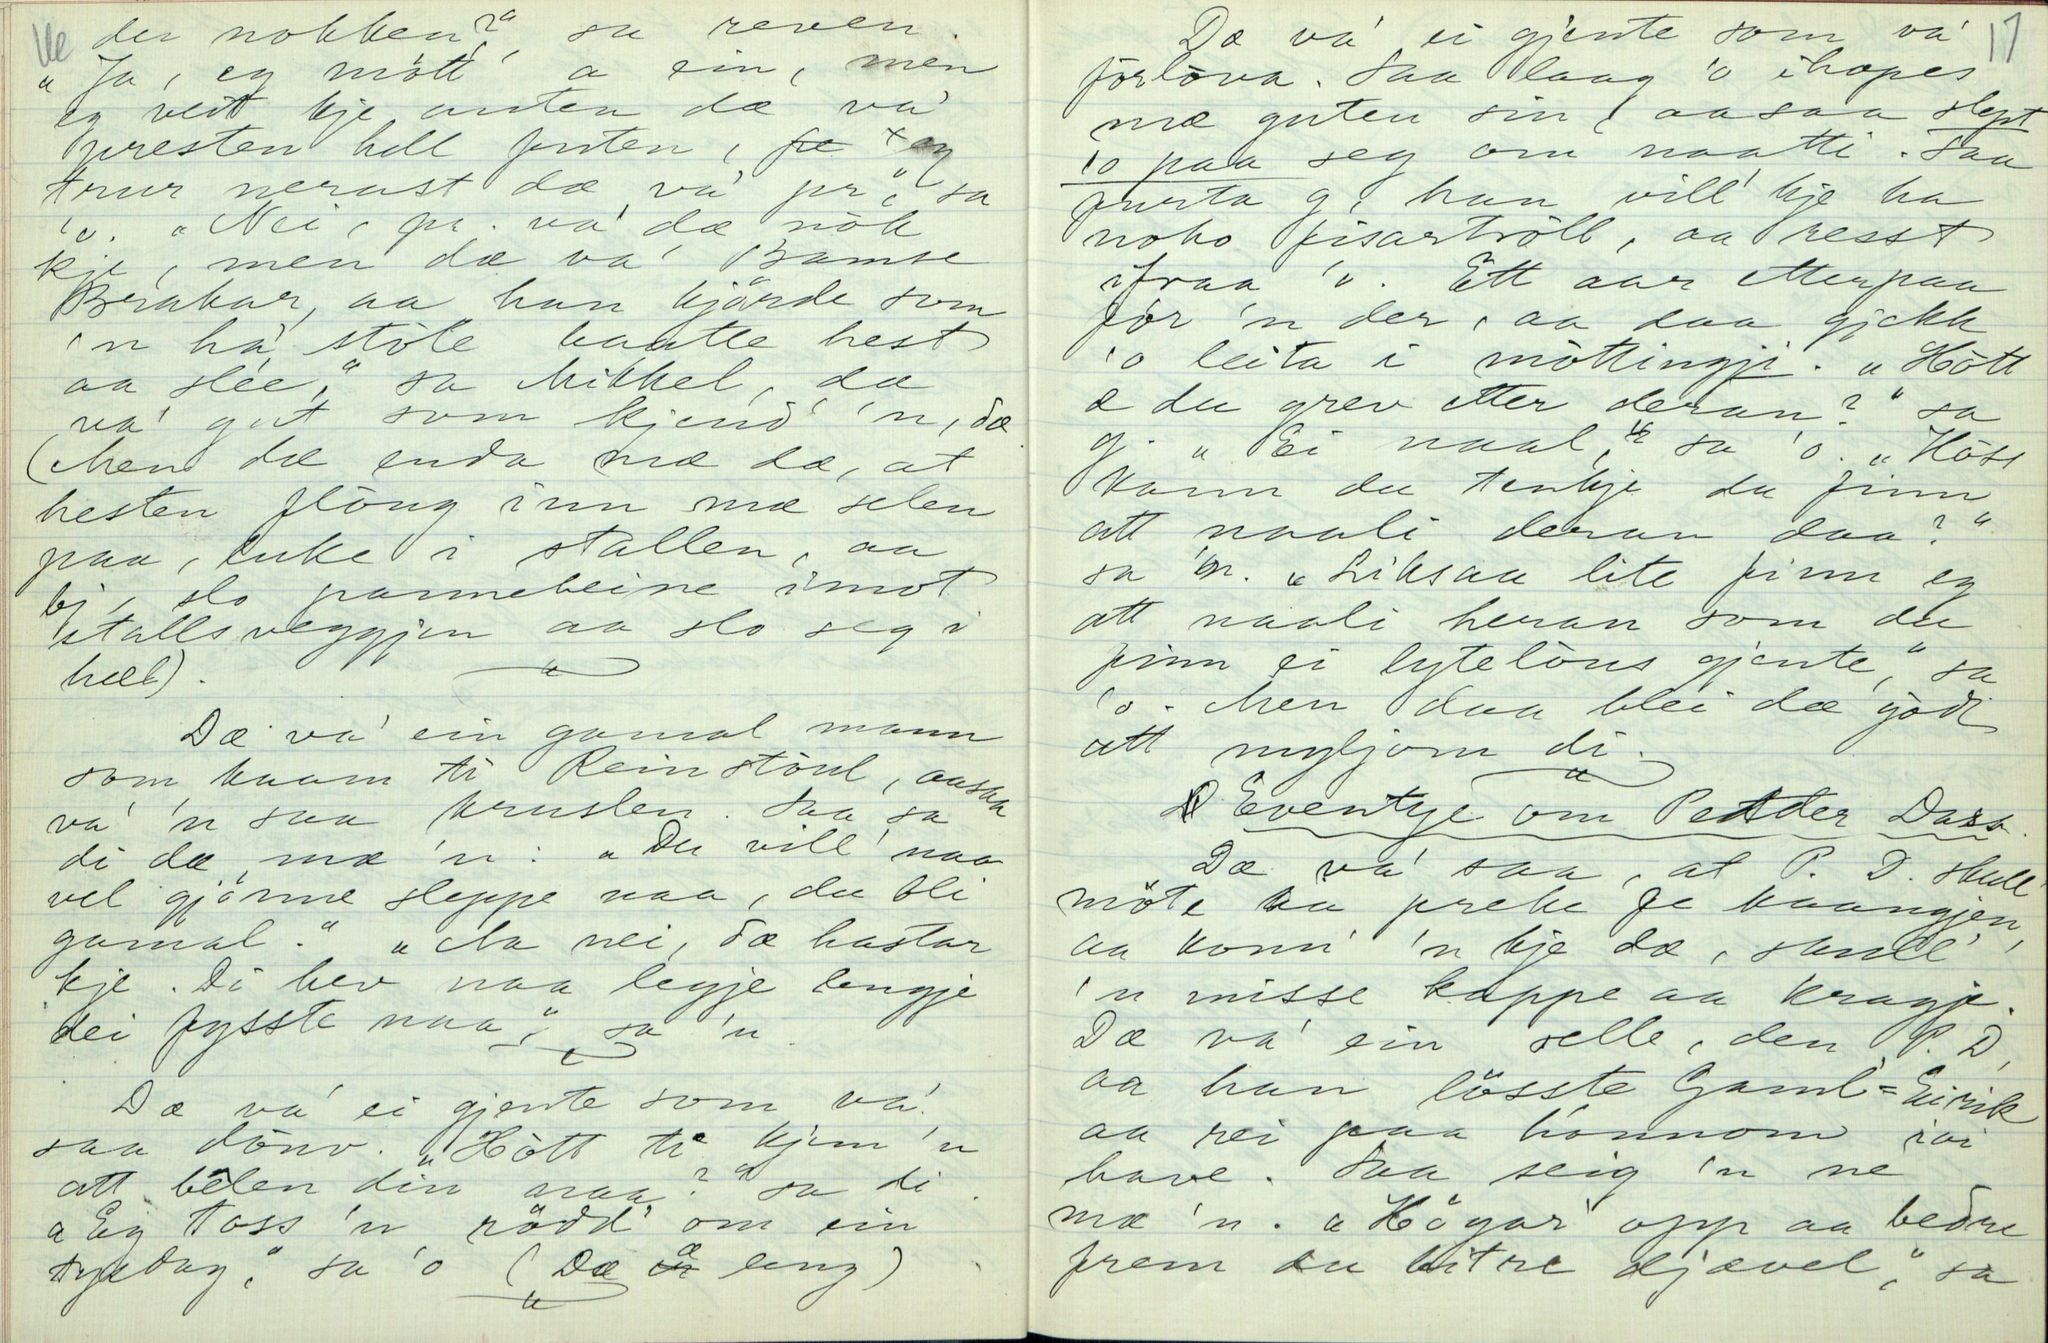 16
der nokken?" sa reven.
"Ja, eg mött' a ein, men
eg veit kje anten dæ va'
presten hell futen, fe + eg
trur nerast dæ va' pr." sa
'o. "Nei, pr. va' dæ nòk
kje, men dæ va' Bamse
Brakar, aa han kjörde som
'n ha' stöle baate hest
aa slee," sa Mikkel, dæ
va' gut som kjend' 'n, dæ
(Men dæ enda mæ dæ, at
hesten flöug inn mæ selen
paa, luke i stallen, aa
bj, slo panneleine imot
stallsveggjen aa slo seg i
hæl).
Dæ va' ein gamal mann
som kaam ti Reinstöul, aasaa
va' 'n saa kruslen. Saa sa
di dæ mæ 'n: "Du vill' naa
vel gjönne sleppe naa, du bli
gamal." "Aa nei, dæ hastar
kje. Di hev naa legje lengje
dei fysste naa," sa 'n.
Dæ va' ei gjente som va'
saa dönv. "Hòtt ti kjem 'n
att belen din naa?" sa di.
"Eig toss 'n rödd' om ein
syedag," sa 'o (Dæ æ leng)
17
Dæ va' ei gjente som va'
förlöva. Saa laag 'o ihopes
mæ guten sin, aasaa slept
'o paa seg om naatti. Saa
furta g, han vill' kje ha
noko fisartröll, aa resst
ifraa 'o. Ett aar etterpaa
for 'n der, aa daa gjekk
'o leita i möttingji. "Hòtt
æ du grev etter deran?" sa
g. "Ei naal," sa 'o. "Hòss
kann du tenkje du finn
att naali deran daa?"
sa 'n. "Liksaa lite finn eg
att naali heran som du
finn ei lytelöus gjente," sa
'o. Men daa blei dæ godt
att myljom di.
Eventye om Petter Dass.
Dæ va' saa, at P. D. skull'
möte aa preke fe kaangjen,
aa konn' 'n kje dæ, skull'
'n misse kappe aa kragje.
Dæ va' ein selle, den P. D,
aa han lösste Gaml=Eirik
aa rei paa honnom ivi
have. Saa seig 'n ne
mæ 'n. "Högar' opp aa bedre
frem du bitre djævel," sa